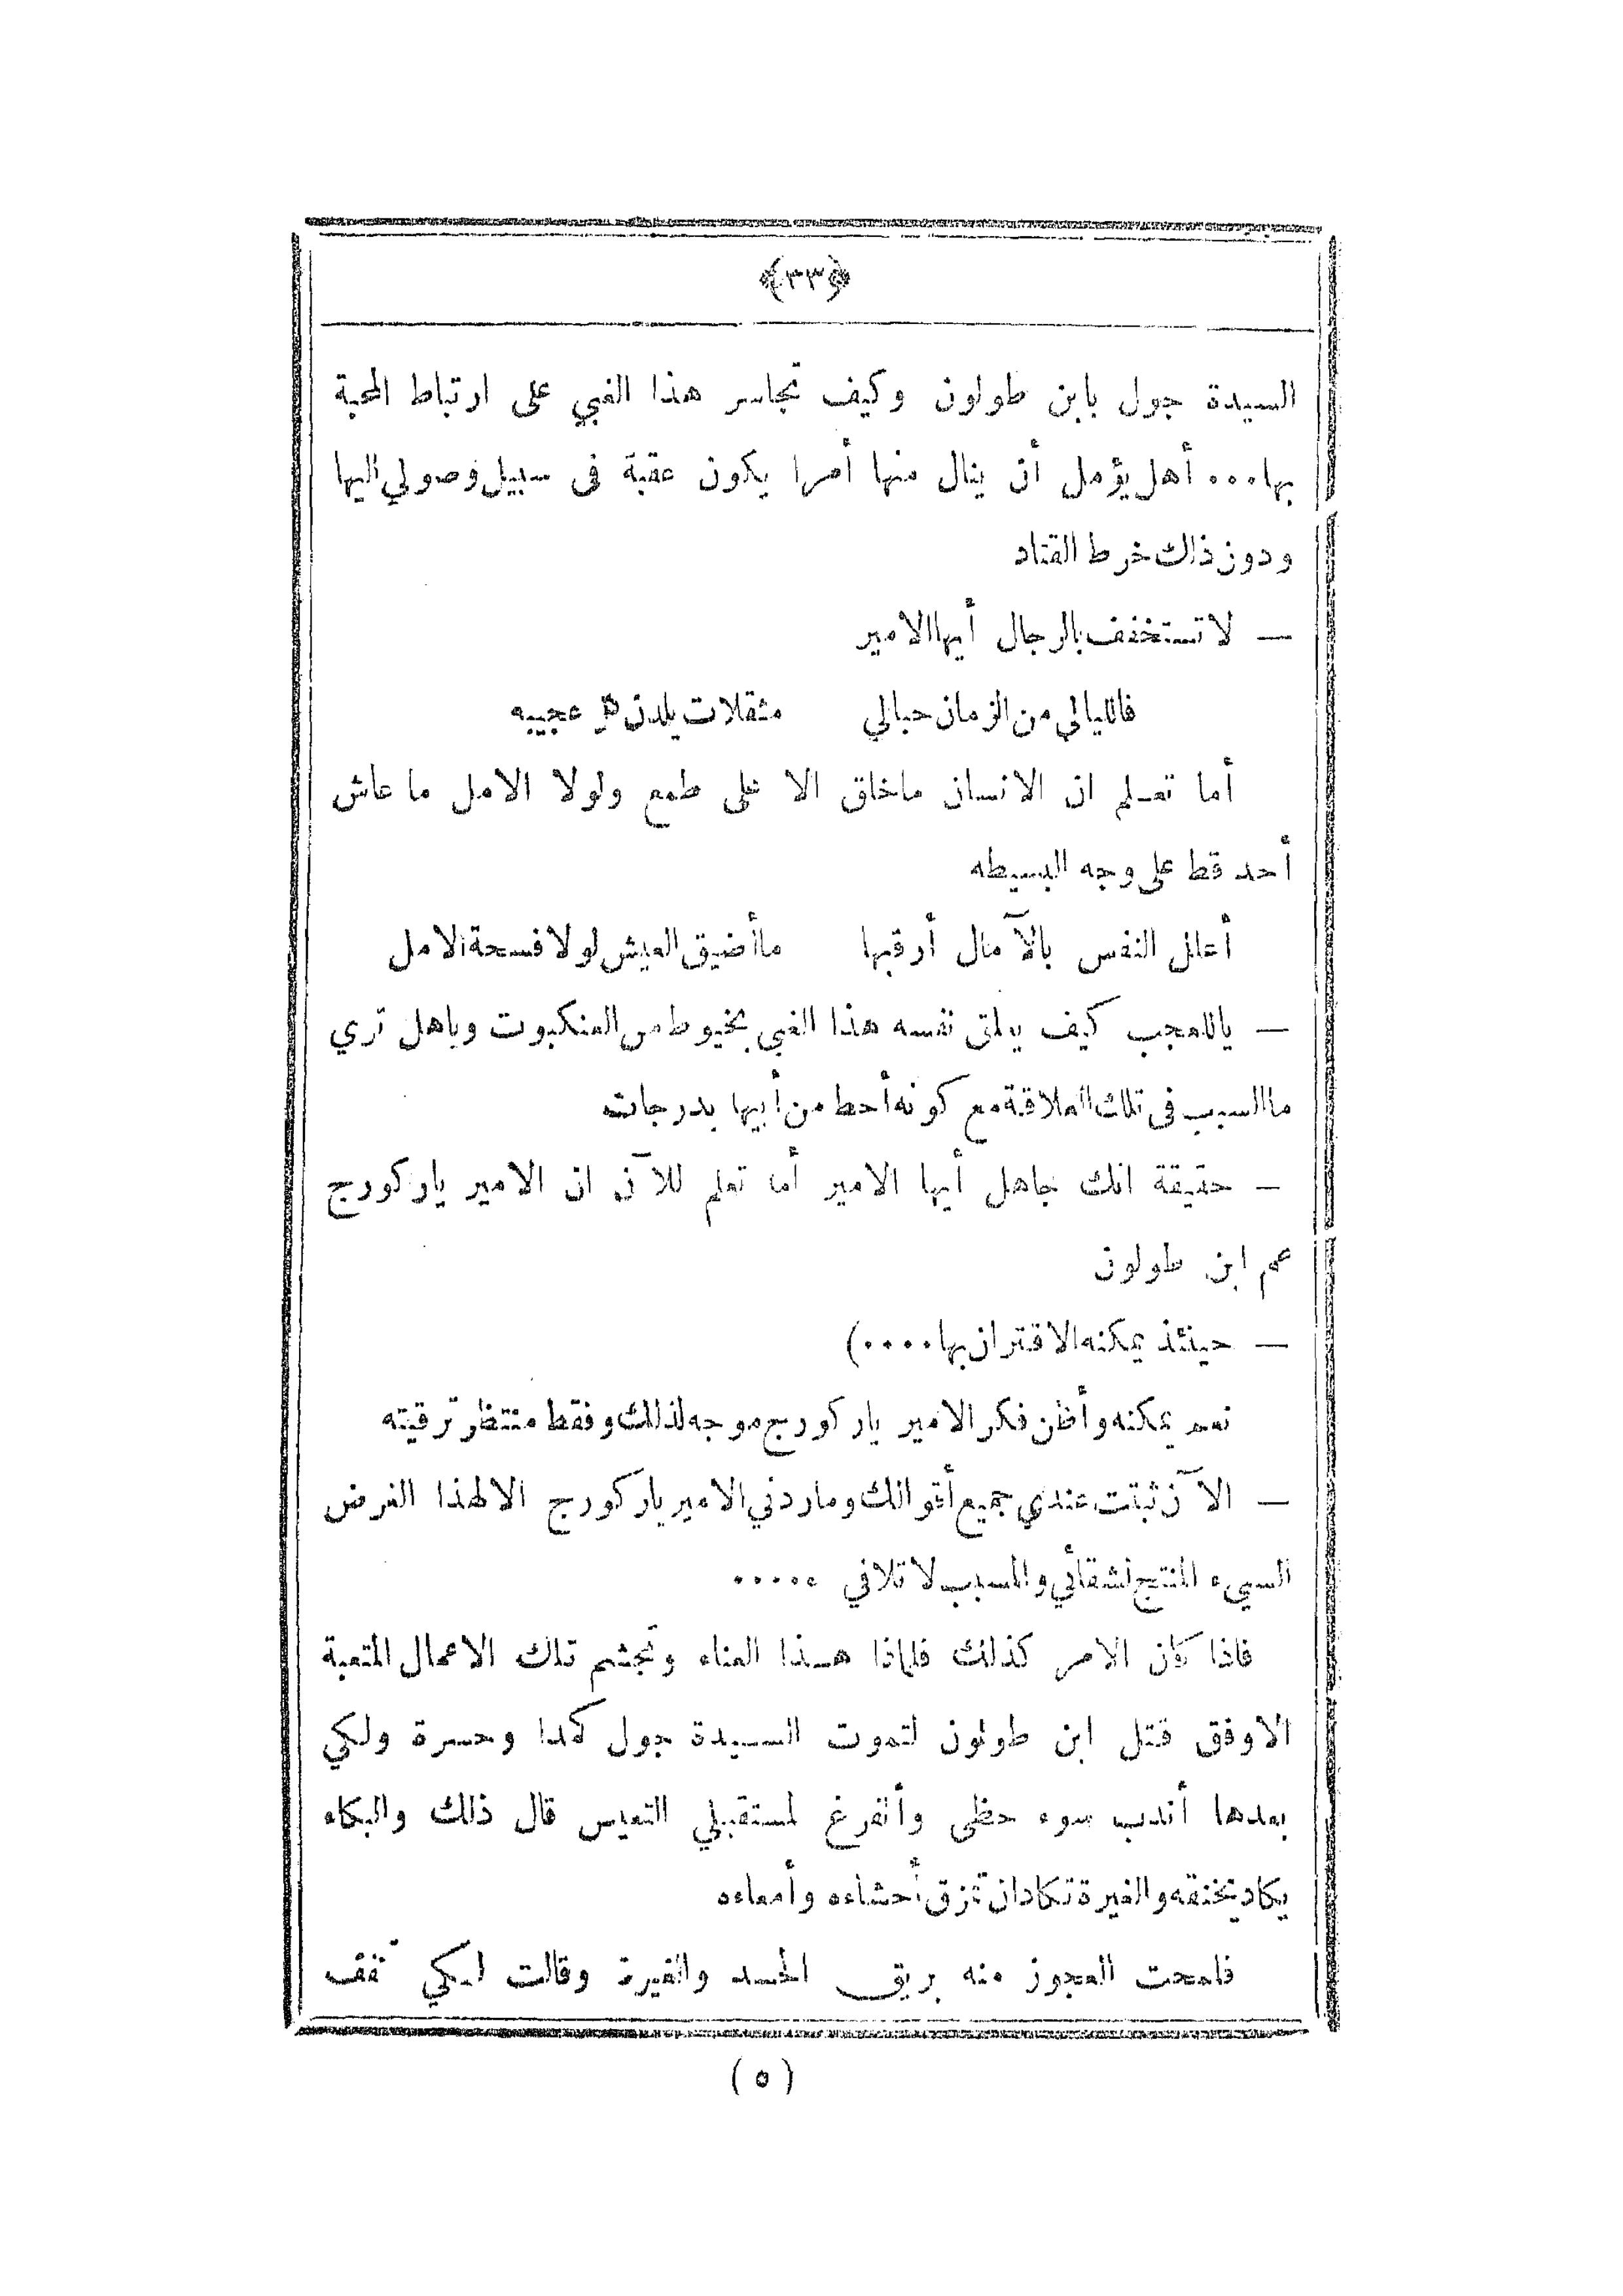 ﴿٣٣﴾
السيدة جول بابن طولون وكيف تجاسر هذا الغبي على ارتباط المحبة
بها ٠٠٠ أهل يؤمل أن ينال منها أمرا يكون عقبة فى سبيل وصولي اليها
ودون ذلك خرط القتاد
— لا تستخفف بالرجال أيها الامير
فالليالي من الزمان حبالي مثقلات يلدن عجيبه
أما تعلم ان الانسان ما خلق الا على طمع ولولا الامل ما عاش
أحد قط على وجه البسيطه
أعلل النفس بالآمال أرقبها ما أضيق العيش لولا فسحة الامل
— ياللعجب كيف يعلق نفسه هذا الغبي بخيوط من العنكبوت وياهل تري
ما السبب فى تلك العلاقة مع كونه أحط من أبيها بدرجات
— حقيقة انك جاهل أيها الامير أما تعلم للآن ان الامير ياركورج
عم ابن طولون
— حينئذ يمكنه الاقتران بها ٠٠٠٠)
نعم يمكنه وأظن فكر الامير ياركورج موجه لذلك وفقط منتظر ترقيته
— الآن ثبتت عندي جميع أقوالك وما ردني الامير ياركورج الا لهذا الغرض
السيء المنتج لشقائي والمسبب لا تلافي ٠٠٠٠٠
فاذا كان الامر كذلك فلماذا هذا العناء وتجشم تلك الاعمال المتعبة
الاوفق قتل ابن طولون لتموت السيدة جول كمدا وحسرة ولكي
بعدها أندب سوء حظى وأتفرغ لمستقبلي التعيس قال ذلك والبكاء
يكاد يخنقه والغيرة تكاد ان تمزق أحشاءه وأمعاءه
فلمحت العجوز منه بريق الحسد والغيرة وقالت لكي تقف
(٥)